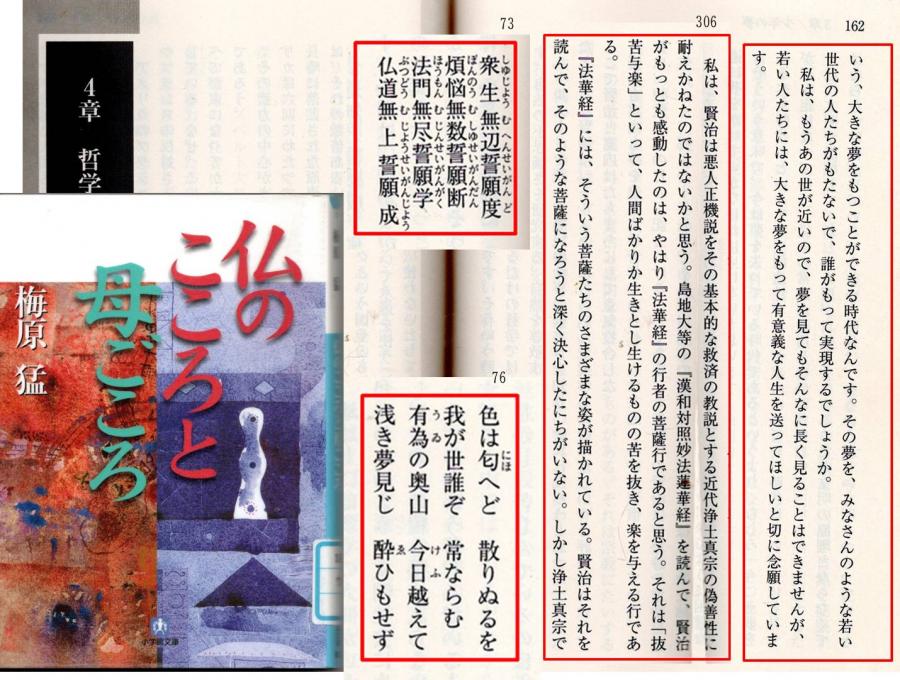 4章 哲学
仏の
こころと
母ごころ
梅原 猛
小学館文庫
73
衆生無辺誓願度
しゅじょう む へんせいがん ど
煩悩無数誓願断
ぼんのう む しゅせいがんだん
法門無尽誓願学
ほうもん む じんせいがんがく
仏道無上誓願成
ぶつどう む じょうせいがんじょう
76
色は匂へど 散りぬるを
にほ
我が世誰ぞ 常ならむ
有為の奥山 今日越えて
うゐ けふ
浅き夢見じ 酔ひもせず
ゑ
306
私は、賢治は悪人正機説をその基本的な救済の教説とする近代浄土真宗の偽善性に
耐えかねたのではないかと思う。島地大等の『漢和対照妙法蓮華経』を読んで、賢治
がもっとも感動したのは、やはり『法華経』の行者の菩薩行であると思う。それは「抜
苦与楽」といって、人間ばかりか生きとし生けるものの苦を抜き、楽を与える行であ
る。
『法華経』には、そういう菩薩たちのさまざまな姿が描かれている。賢治はそれを
読んで、そのような菩薩になろうと深く決心したにちがいない。しかし浄土真宗で
162
いう、大きな夢をもつことができる時代なんです。その夢を、みなさんのような若い
世代の人たちがもたないで、誰がもって実現するでしょうか。
私は、もうあの世が近いので、夢を見てもそんなに長く見ることはできませんが、
若い人たちには、大きな夢をもって有意義な人生を送ってほしいと切に念願していま
す。